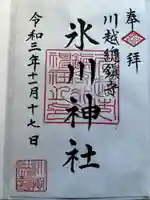 奉拝
川越總鎮守
氷川神社
令和三年十一月十七日